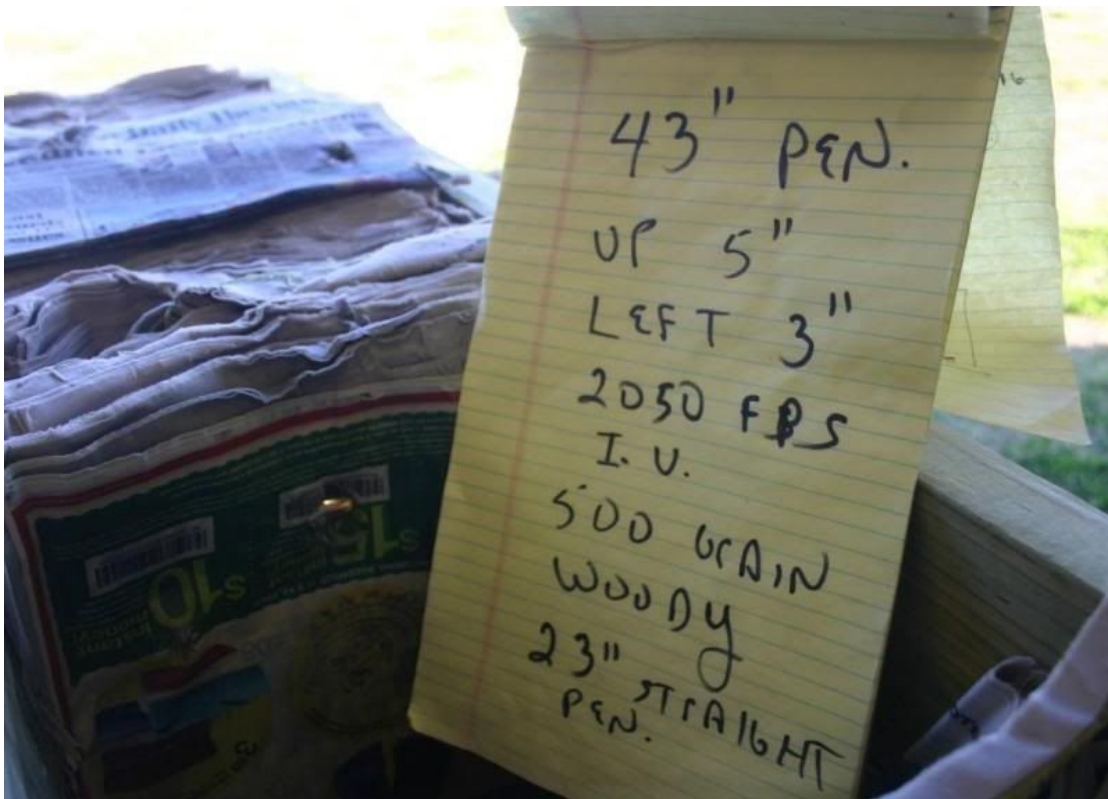 43" PEN.
UP 5"
LEFT 3"
2050 FPS
I.V.
500 GRAIN
WOODY
23" STRAIGHT
PEN.
16
$15
$10